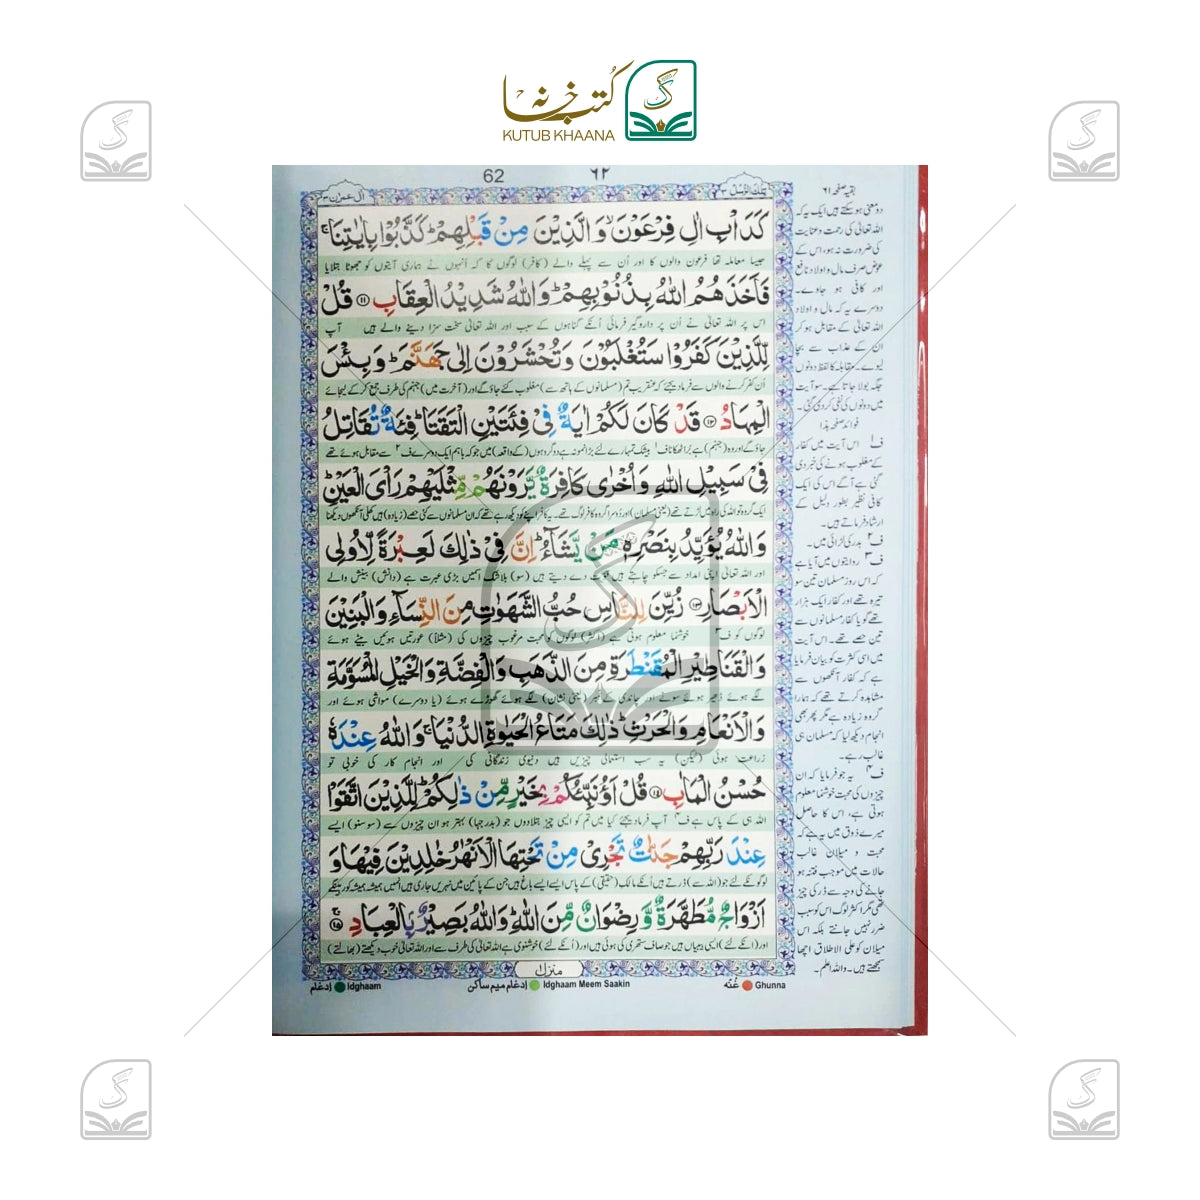 کتب خانہ
KUTUB KHAANA
62
٦٢
اٰل عمرٰن ٣
تلک الرسل ٣
كَدَاْبِ اٰلِ فِرْعَوْنَ ۙ وَالَّذِيْنَ مِنْ قَبْلِهِمْ ؕ كَذَّبُوْا بِاٰيٰتِنَا ۚ
جیسا معاملہ تھا فرعون والوں کا اور اُن سے پہلے والے (کافر) لوگوں کا کہ اُنہوں نے ہماری آیتوں کو جھوٹا بتلایا
فَاَخَذَهُمُ اللّٰهُ بِذُنُوْبِهِمْ ؕ وَاللّٰهُ شَدِيْدُ الْعِقَابِ ١١ قُلْ
اس پر اللہ تعالیٰ نے اُن پر داروگیر فرمائی اُنکے گناہوں کے سبب اور اللہ تعالیٰ سخت سزا دینے والے ہیں آپ
لِّلَّذِيْنَ كَفَرُوْا سَتُغْلَبُوْنَ وَتُحْشَرُوْنَ اِلٰى جَهَنَّمَ ؕ وَبِئْسَ
اُن کفر کرنے والوں سے فرما دیجئے کہ عنقریب تم (مسلمانوں کے ہاتھ سے) مغلوب کئے جاؤ گے اور (آخرت میں) جہنم کی طرف جمع کر کے لیجائے
الْمِهَادُ ١٢ قَدْ كَانَ لَكُمْ اٰيَةٌ فِيْ فِئَتَيْنِ الْتَقَتَا ؕ فِئَةٌ تُقَاتِلُ
جاؤ گے اور وہ (جہنم) ہے بُرا ٹھکانا ف۱ بیشک تمہارے لئے بڑا نمونہ ہے دو گروہوں (کے واقعہ) میں جو کہ باہم ایک دوسرے ف۲ سے مقابل ہوئے تھے
فِيْ سَبِيْلِ اللّٰهِ وَاُخْرٰى كَافِرَةٌ يَّرَوْنَهُمْ مِّثْلَيْهِمْ رَاْيَ الْعَيْنِ ؕ
وَاللّٰهُ يُؤَيِّدُ بِنَصْرِهٖ مَنْ يَّشَآءُ ؕ اِنَّ فِيْ ذٰلِكَ لَعِبْرَةً لِّاُولِى
اور اللہ تعالیٰ اپنی امداد سے جسکو چاہتے ہیں قوت دے دیتے ہیں (سو) بلاشک اسمیں بڑی عبرت ہے (دانش) بینش والے
الْاَبْصَارِ ١٣ زُيِّنَ لِلنَّاسِ حُبُّ الشَّهَوٰتِ مِنَ النِّسَآءِ وَالْبَنِيْنَ
لوگوں کو ف۳ خوشنما معلوم ہوتی ہے (اکثر) لوگوں کو محبت مرغوب چیزوں کی (مثلاً) عورتیں ہوئیں بیٹے ہوئے
وَالْقَنَاطِيْرِ الْمُقَنْطَرَةِ مِنَ الذَّهَبِ وَالْفِضَّةِ وَالْخَيْلِ الْمُسَوَّمَةِ
لگے ہوئے ڈھیر ہوئے سونے اور چاندی کے نمبر (یعنی نشان) لگے ہوئے گھوڑے ہوئے (یا دوسرے) مواشی ہوئے اور
وَالْاَنْعَامِ وَالْحَرْثِ ؕ ذٰلِكَ مَتَاعُ الْحَيٰوةِ الدُّنْيَا ۚ وَاللّٰهُ عِنْدَهٗ
زراعت ہوئی (لیکن) یہ سب استعمالی چیزیں ہیں دنیوی زندگانی کی اور انجام کار کی خوبی تو
حُسْنُ الْمَاٰبِ ١٤ قُلْ اَؤُنَبِّئُكُمْ بِخَيْرٍ مِّنْ ذٰلِكُمْ ؕ لِلَّذِيْنَ اتَّقَوْا
اللہ ہی کے پاس ہے ف۴ آپ فرما دیجئے کیا میں تم کو ایسی چیز بتلادوں جو (بدرجہا) بہتر ہو ان چیزوں سے (سو سنو) ایسے
عِنْدَ رَبِّهِمْ جَنّٰتٌ تَجْرِيْ مِنْ تَحْتِهَا الْاَنْهٰرُ خٰلِدِيْنَ فِيْهَا وَ
لوگوں کے لئے جو (اللہ سے) ڈرتے ہیں اُنکے مالک (حقیقی) کے پاس ایسے ایسے باغ ہیں جن کے پائین میں نہریں جاری ہیں اُنمیں ہمیشہ ہمیشہ کو رہینگے
اَزْوَاجٌ مُّطَهَّرَةٌ وَّرِضْوَانٌ مِّنَ اللّٰهِ ؕ وَاللّٰهُ بَصِيْرٌۢ بِالْعِبَادِ ١٥
اور (انکے لئے) ایسی بیبیاں ہیں جو صاف ستھری کی ہوئی ہیں اور (اُنکے لئے) خوشنودی ہے اللہ تعالیٰ کی طرف سے اور اللہ تعالیٰ خوب دیکھتے (بھالتے)
منزل ۱
بقیہ صفحہ ٦١
دو معنی ہو سکتے ہیں ایک یہ کہ
اللہ تعالیٰ کی رحمت و عنایت
کی ضرورت نہ ہو، اس کے
عوض صرف مال و اولاد نافع
اور کافی ہو جاوے۔
دوسرے یہ کہ مال و اولاد
اللہ تعالیٰ کے مقابل ہو کر
ان کے عذاب سے بچا
لیوے۔ مقابلہ کا لفظ دونوں
جگہ بولا جاتا ہے۔ سو آیت
میں دونوں کی نفی کر دی گئی۔
فوائد صفحہ ہذا
ف۱ اس آیت میں کفار
کے مغلوب ہونے کی خبر دی
گئی ہے آگے اس کی ایک
کافی نظیر بطور دلیل کے
ارشاد فرماتے ہیں۔
ف۲ بدر کی لڑائی میں۔
ف۳ روایتوں میں آیا ہے
کہ اس روز مسلمان تین سو
تیرہ تھے اور کفار ایک ہزار
تھے گویا کفار مسلمانوں سے
تین حصے تھے۔ اس آیت
میں اسی کثرت کو بیان فرمایا
ہے کہ کفار آنکھوں سے
مشاہدہ کرتے تھے کہ ہمارا
گروہ زیادہ ہے مگر پھر بھی
انجام دیکھ لیا کہ مسلمان ہی
غالب رہے۔
ف۴ یہ جو فرمایا کہ ان
چیزوں کی محبت خوشنما معلوم
ہوتی ہے، اس کا حاصل
میرے ذوق میں یہ ہے کہ
محبت و میلان غالب
حالات میں موجب فتنہ ہو
جانے کی وجہ سے ڈر کی چیز
تھی مگر اکثر لوگ اس کو سبب
ضرر نہیں جانتے بلکہ اس
میلان کو علی الاطلاق اچھا
سمجھتے ہیں۔ واللہ اعلم۔
اِدغام Idghaam
اِدغام میم ساکن Idghaam Meem Saakin
غُنّہ Ghunna